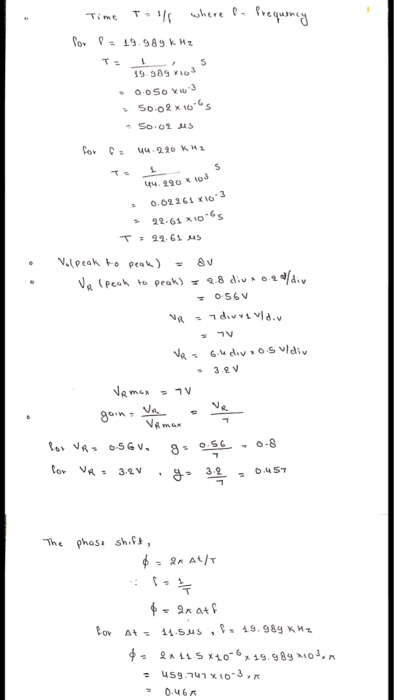 Time T = 1/f where f - frequency
for f = 19.989 kHz
T = 1 / 19.989 x 10³ , s
= 0.050 x 10⁻³
= 50.02 x 10⁻⁶ s
= 50.02 µs
for f = 44.220 KHz
T = 1 / 44.220 x 10³ s
= 0.02261 x 10⁻³
= 22.61 x 10⁻⁶ s
T = 22.61 µs
V₀(peak to peak) = 8V
V_R (peak to peak) = 2.8 div x 0.2 V/div
= 0.56V
V_R = 7 div x 1 V/div
= 7V
V_R = 6.4 div x 0.5 V/div
= 3.2V
V_Rmax = 7V
gain = V_R / V_Rmax = V_R / 7
for V_R = 0.56V, g = 0.56 / 7 = 0.8
for V_R = 3.2V , g = 3.2 / 7 = 0.457
The phase shift,
ϕ = 2π Δt/T
∵ f = 1 / T
ϕ = 2π Δt f
for Δt = 11.5 µs, f = 19.989 KHz
ϕ = 2 x 11.5 x 10⁻⁶ x 19.989 x 10³ x π
= 459.747 x 10⁻³ x π
= 0.46π